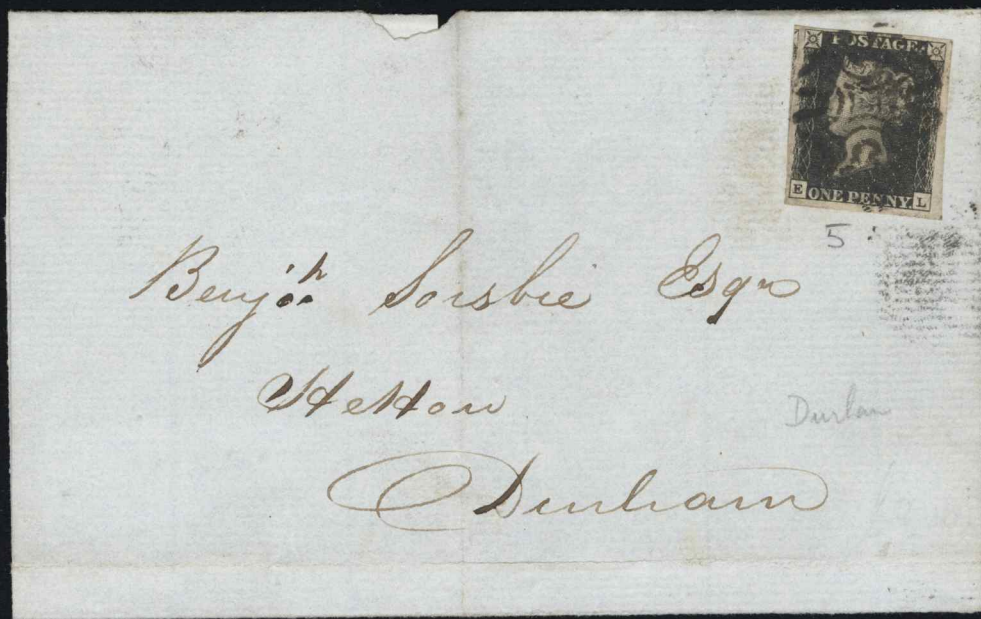 POSTAGE.
E ONE PENNY L
5
Benjn Sorsbie Esqr
Hetton
Durham
Durham